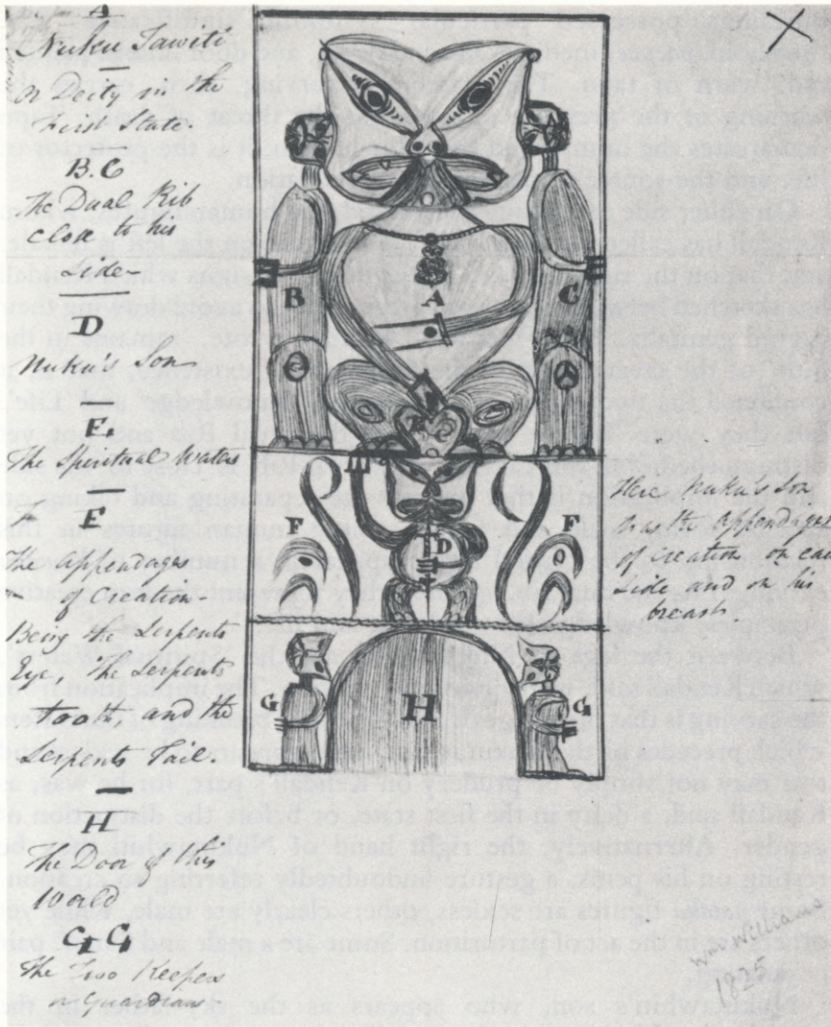 A
Nuku Tawiti
or Deity in the
first State.
B.C
the Dual Rib
close to his
Side—
D
Nuku's Son
E,
The Spiritual Waters
F
The Appendages
of Creation
Being the Serpents
Eye, the Serpents
tooth and the
Serpents Tail.
H
The Door of this
World
G G
The Two Keepers
or Guardians
B
A
C
E
F
D
F
G
H
G
Here Nuku's Son
has the appendages
of creation on each
side and on his
breast
Wm Williams
1825